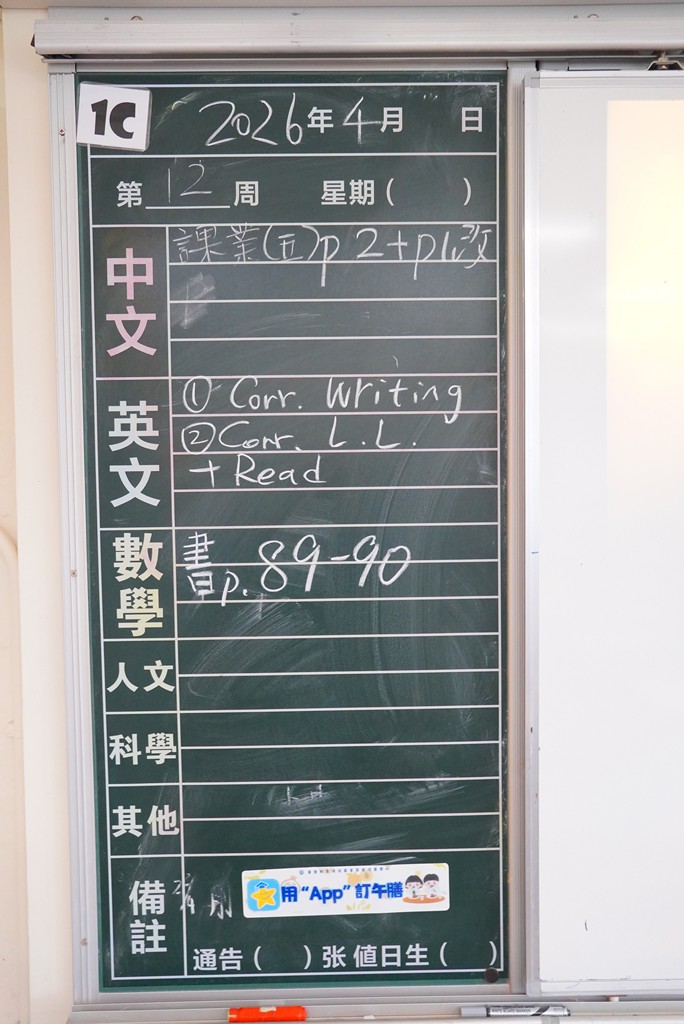 1C
2026年4月 日
第12周 星期( )
中文
課業(五)p2+p1改
英文
① Corr. Writing
② Corr. L.L.
+ Read
數學
書p.89-90
人文
科學
其他
備註
用“App”訂午膳
通告( )张 值日生( )